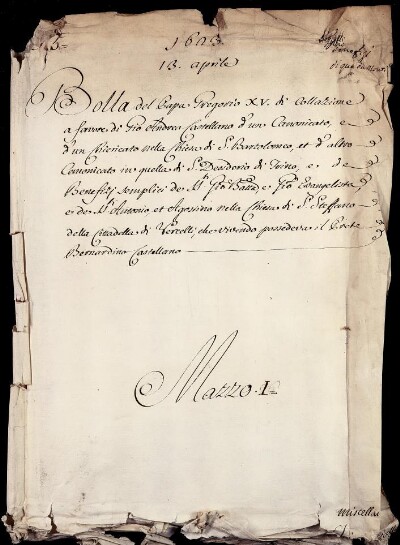 3=
1603
13. aprile
Bolla del Papa Gregorio XV. di Collazione
a favore di Gio Andrea Castellano d'un Canonicato, e
d'un Chiericato nella Chiesa di S. Bartolomeo, et d'altro
Canonicato in quella di S. Desiderio di Torino, e de
Beneficj semplici de Sti Gio Batta, e Gio Evangelista
e de Sti Antonio, et Agostino nella Chiesa di S. Steffano
della Cittadella di Vercelli, che vivendo possedeva il Prete
Bernardino Castellano
Mazzo. 1
miscella